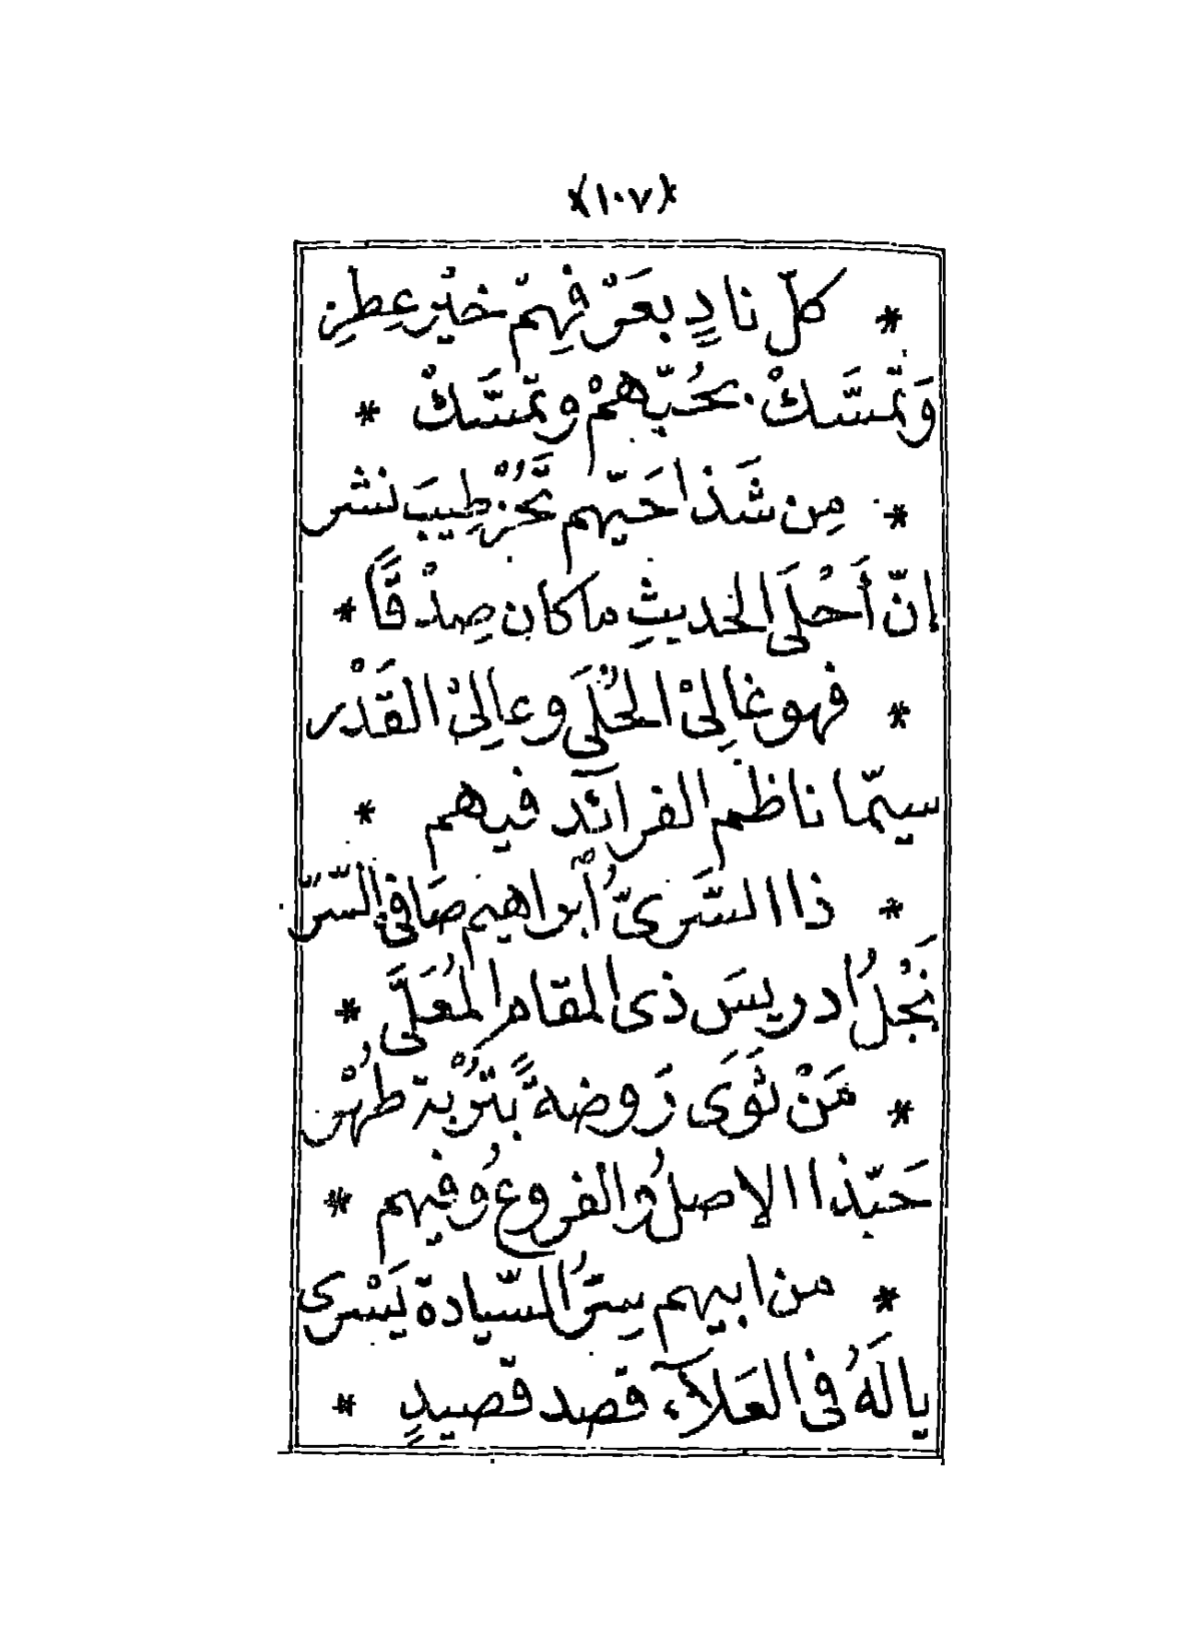 (١٠٧)
* كلّ نادٍ بعَرْفِهِمْ خيْر عِطْرِ
وَتمَّسَّكْ بحُبِّهمْ وتمَسَّكْ *
* مِن شَذا حَيّهم تَحُزْ طِيبَ نشر
إنّ أَحْلَى الحديثِ ما كان صِدْقًا *
* فهو غالِىْ الحُلَى وعالِىْ القَدْر
سيمّا ناظم الفرآئد فيهم *
* ذا السَّرىُّ أبراهيم صَافى السّرّ
نَجْلُ ادريسَ ذى المقام المُعَلَّى *
* مَنْ ثَوَى رَوضةً بتُرْبة طُهْر
حَبّذا الاصلُ والفروعُ وفيهم *
* من ابيهم سِرُّ السّيادة يَسْرى
يا لَهُ فى العَلآء قصد قصيدٍ *